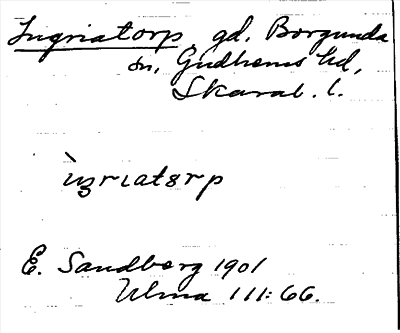 Ingriatorp gd, Borgunda
sn, Gudhems hd,
Skarab. l.
ìŋrıatɞrp
E. Sandberg 1901
Ulma 111:66.